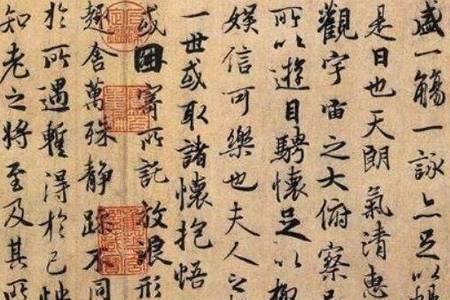 盛一觴一詠亦足以暢
是日也天朗氣清惠
觀宇宙之大俯察品
所以遊目騁懷足以極
娛信可樂也夫人之相
一世或取諸懷抱悟
或因寄所託放浪形
趣舍萬殊靜躁不同
於所遇暫得於己快
知老之將至及其所